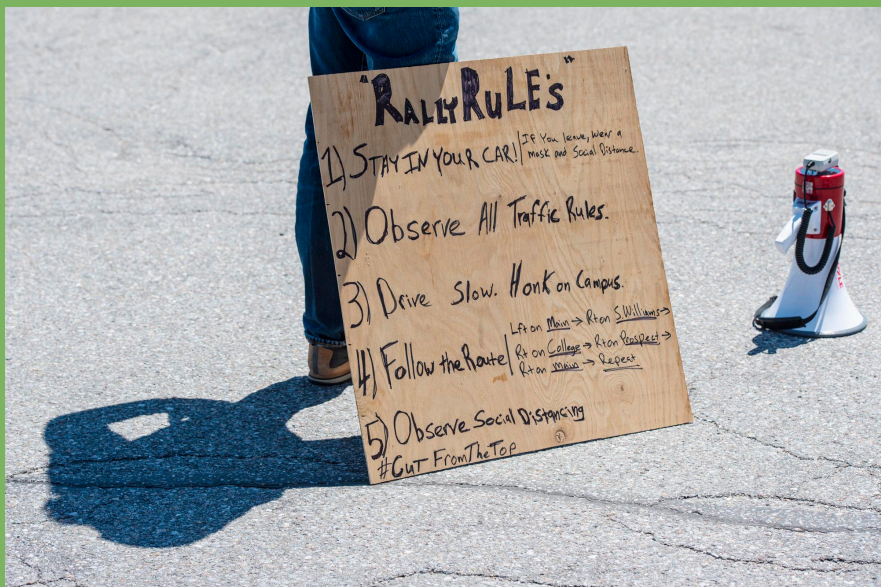 "RALLY RULE's"
1) STAY IN YOUR CAR! | If You leave, wear a
mask and Social Distance.
2) Observe All Traffic Rules.
3) Drive Slow. Honk on Campus.
4) Follow the Route | Lft on Main → Rt on S. Williams →
Rt on College → Rt on Prospect →
Rt on Main → Repeat
5) Observe Social Distancing
#CUT FromTheTop